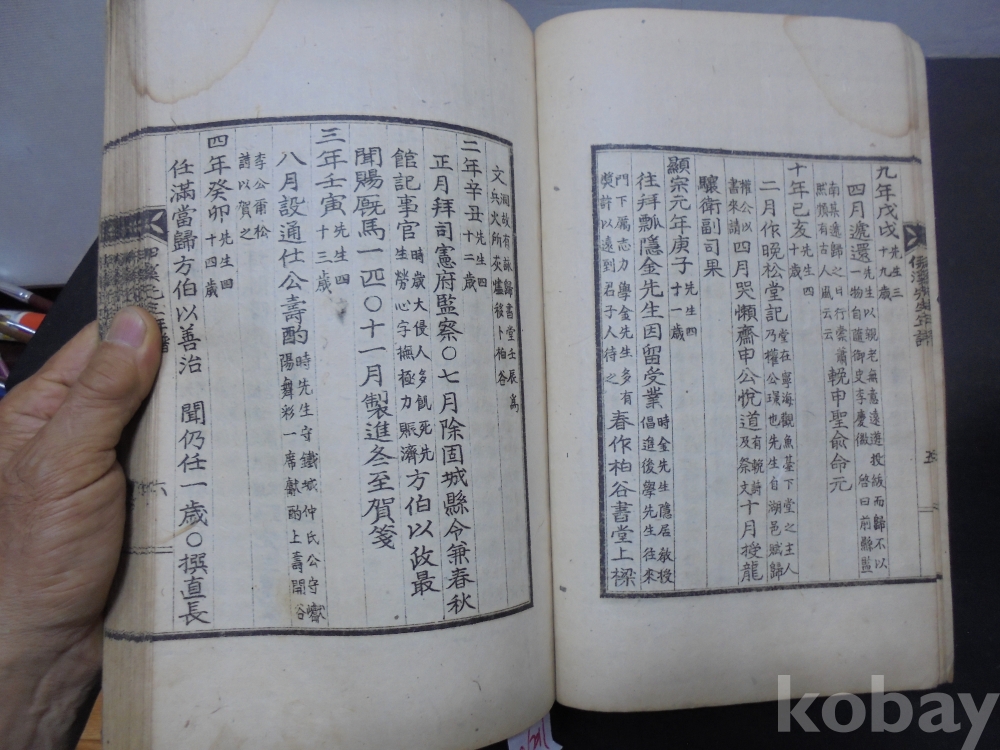 九年戊戌 先生三十九歲
四月遞還 先生以親老無意遠遊投紱而歸不以一物自隨御史李慶徽 啓曰前縣監南某還歸之日行橐蕭然頗有古人風云云 輓申聖兪命元
十年己亥 先生四十歲
二月作晩松堂記 堂在寧海觀魚臺下堂之主人乃權公璟也先生自湖邑賦歸權公以書來請 四月哭懶齋申公悅道 有輓詩及祭文 十月授龍
驤衛副司果
顯宗元年庚子 先生四十一歲
往拜瓢隱金先生因留受業 時金先生隱居敎授倡進後學先生往來門下厲志力學金先生多有奬許以遠到君子人待之 春作柏谷書堂上樑
文 洞故有詠歸書堂壬辰爲兵火所灰燼移卜柏谷
二年辛丑 先生四十二歲
正月拜司憲府監察○七月除固城縣令兼春秋
館記事官 時歲大侵人多飢死先生勞心字撫極力賑濟 方伯以政最
聞賜廐馬一匹○十一月製進冬至賀箋
三年壬寅 先生四十三歲
八月設通仕公壽酌 時先生守鐵城仲氏公守巘陽舞彩一席獻酌上壽開谷李公爾松詩以賀之
四年癸卯 先生四十四歲
任滿當歸方伯以善治 聞仍任一歲○撰直長
kobay